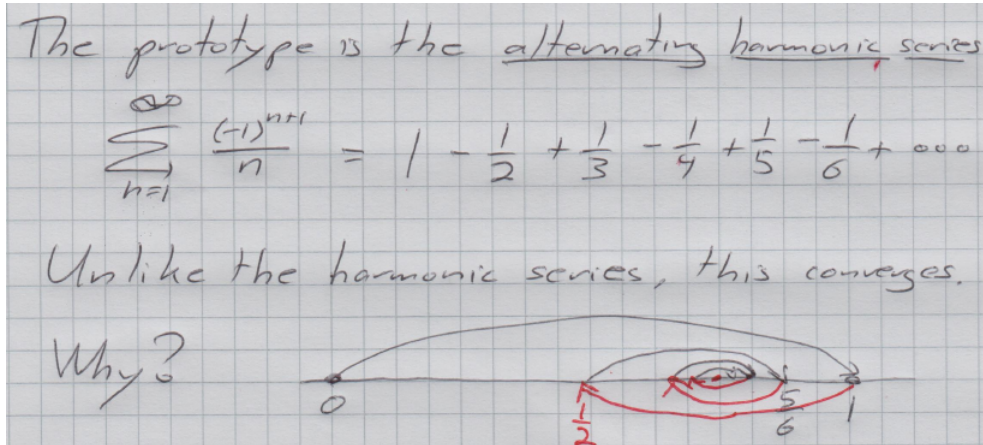 The prototype is the alternating harmonic series
∞
∑ (-1)^{n+1}/n = 1 - 1/2 + 1/3 - 1/4 + 1/5 - 1/6 + ...
n=1
Unlike the harmonic series, this converges.
Why?
0 1/2 5/6 1